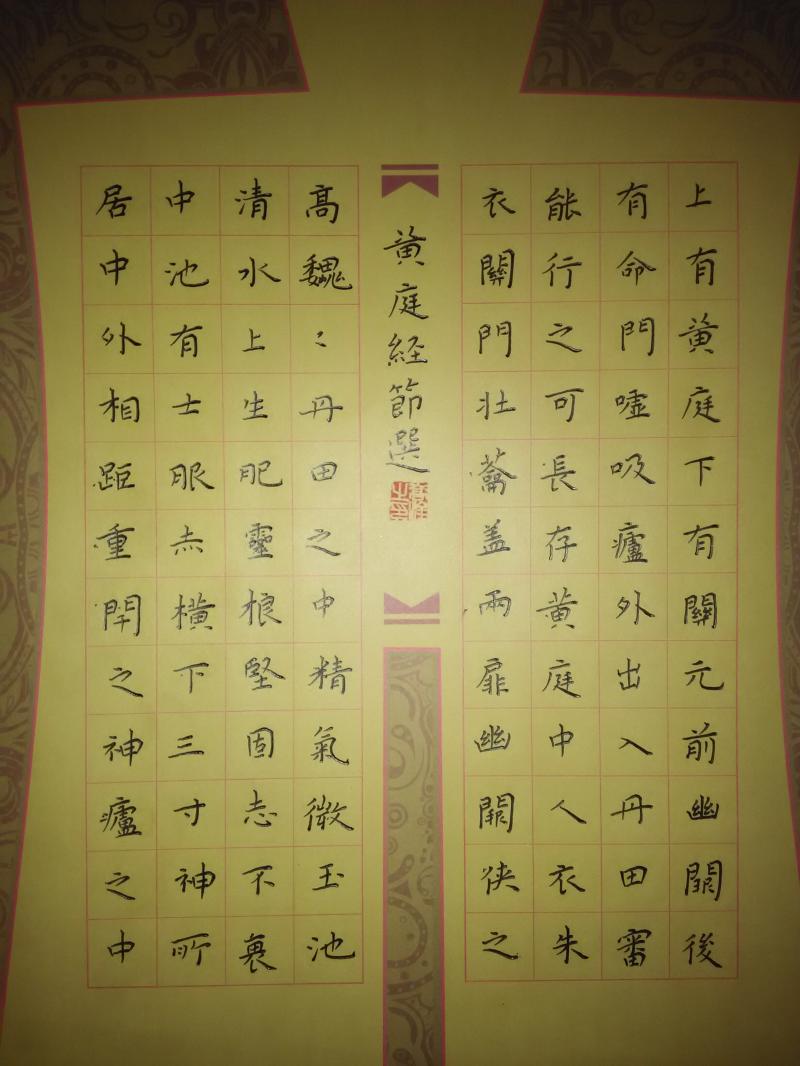 上有黃庭下有關元前幽闕後
有命門噓吸廬外出入丹田審
能行之可長存黃庭中人衣朱
衣關門壯蘥盖兩扉幽闕俠之
黃庭経節選
高魏〻丹田之中精氣微玉池
清水上生肥靈根堅固志不衰
中池有士服赤横下三寸神所
居中外相距重閇之神廬之中